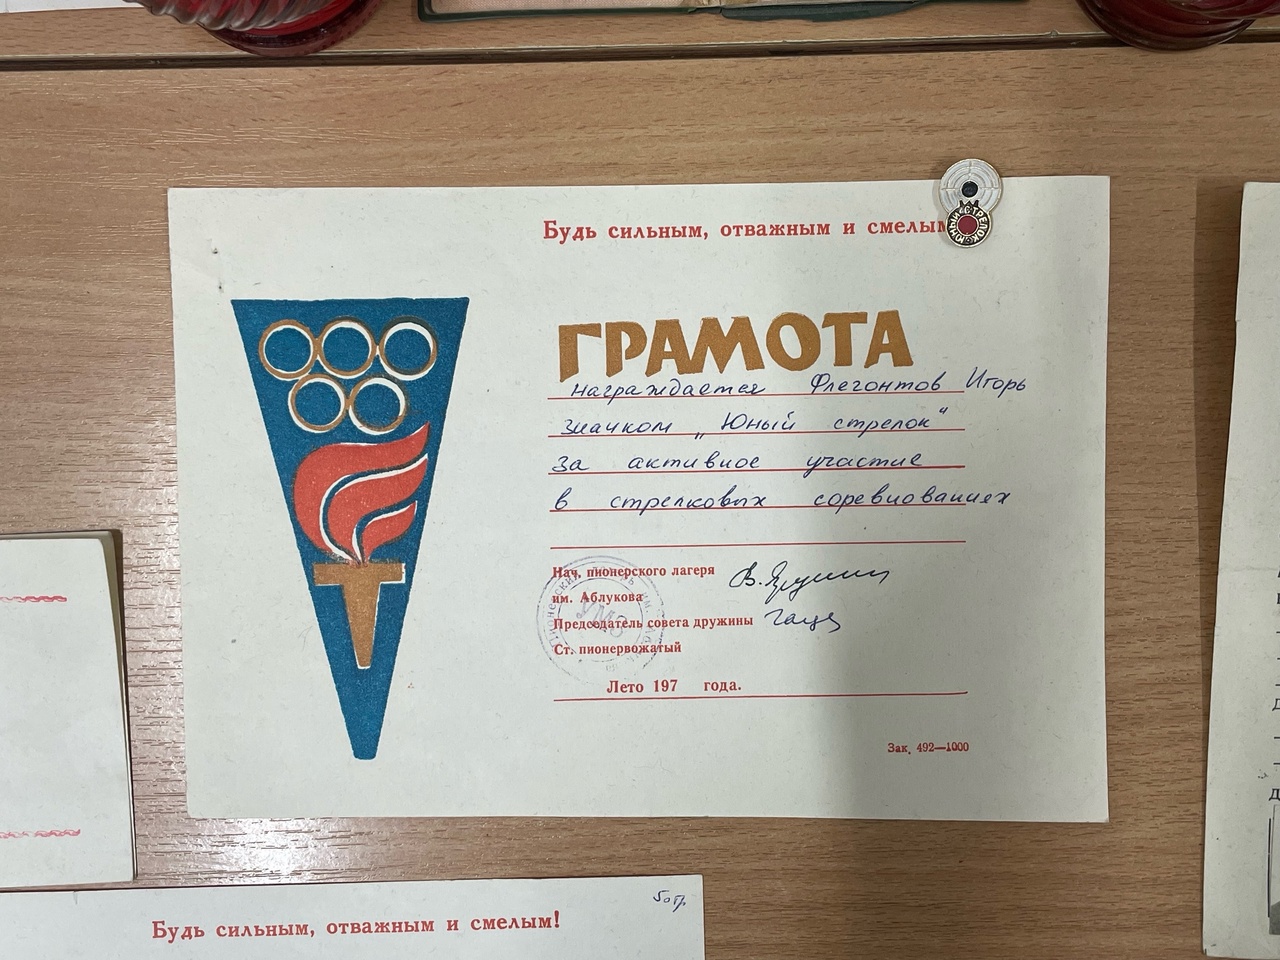 Будь сильным, отважным и смелым
ЮНЫЙ СТРЕЛОК
ГРАМОТА
награждается Флегонтов Игорь
значком „Юный стрелок"
за активное участие
в стрелковых соревнованиях
Нач. пионерского лагеря
им. Аблукова
Председатель совета дружины
Ст. пионервожатый
УМЗ
Лето 197 года.
Зак. 492—1000
Будь сильным, отважным и смелым!